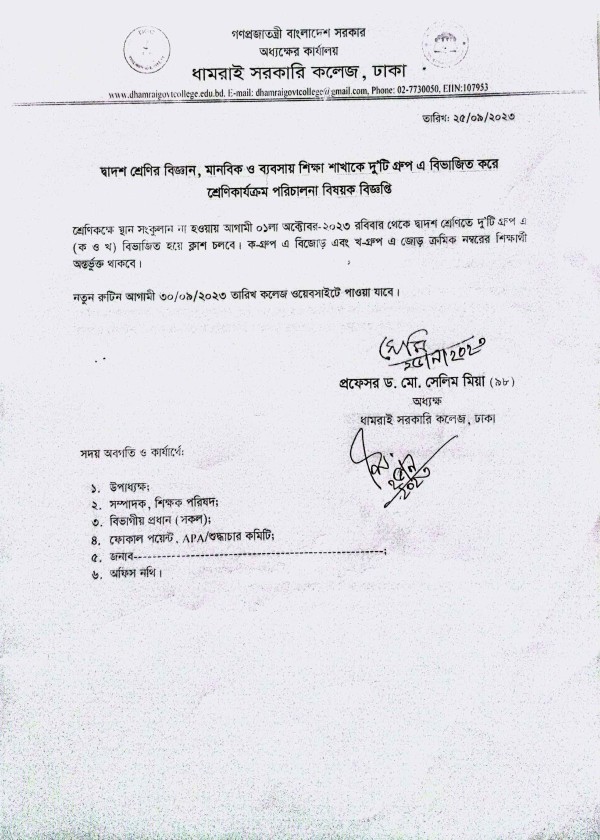 গণপ্রজাতন্ত্রী বাংলাদেশ সরকার
অধ্যক্ষের কার্যালয়
ধামরাই সরকারি কলেজ, ঢাকা
www.dhamraigovtcollege.edu.bd, E-mail: dhamraigovtcollege@gmail.com, Phone: 02-7730050, EIIN:107953
তারিখ: ২৫/০৯/২০২৩
দ্বাদশ শ্রেণির বিজ্ঞান, মানবিক ও ব্যবসায় শিক্ষা শাখাকে দু'টি গ্রুপ এ বিভাজিত করে
শ্রেণিকার্যক্রম পরিচালনা বিষয়ক বিজ্ঞপ্তি
শ্রেণিকক্ষে স্থান সংকুলান না হওয়ায় আগামী ০১লা অক্টোবর-২০২৩ রবিবার থেকে দ্বাদশ শ্রেণিতে দু'টি গ্রুপ এ
(ক ও খ) বিভাজিত হয়ে ক্লাশ চলবে। ক-গ্রুপ এ বিজোড় এবং খ-গ্রুপ এ জোড় ক্রমিক নম্বরের শিক্ষার্থী
অন্তর্ভুক্ত থাকবে।
নতুন রুটিন আগামী ৩০/০৯/২০২৩ তারিখ কলেজ ওয়েবসাইটে পাওয়া যাবে।
প্রফেসর ড. মো. সেলিম মিয়া (৯৮)
অধ্যক্ষ
ধামরাই সরকারি কলেজ, ঢাকা
সদয় অবগতি ও কার্যার্থে:
১. উপাধ্যক্ষ;
২. সম্পাদক, শিক্ষক পরিষদ;
৩. বিভাগীয় প্রধান (সকল);
৪. ফোকাল পয়েন্ট, APA/শুদ্ধাচার কমিটি;
৫. জনাব-------------------------------------------;
৬. অফিস নথি।